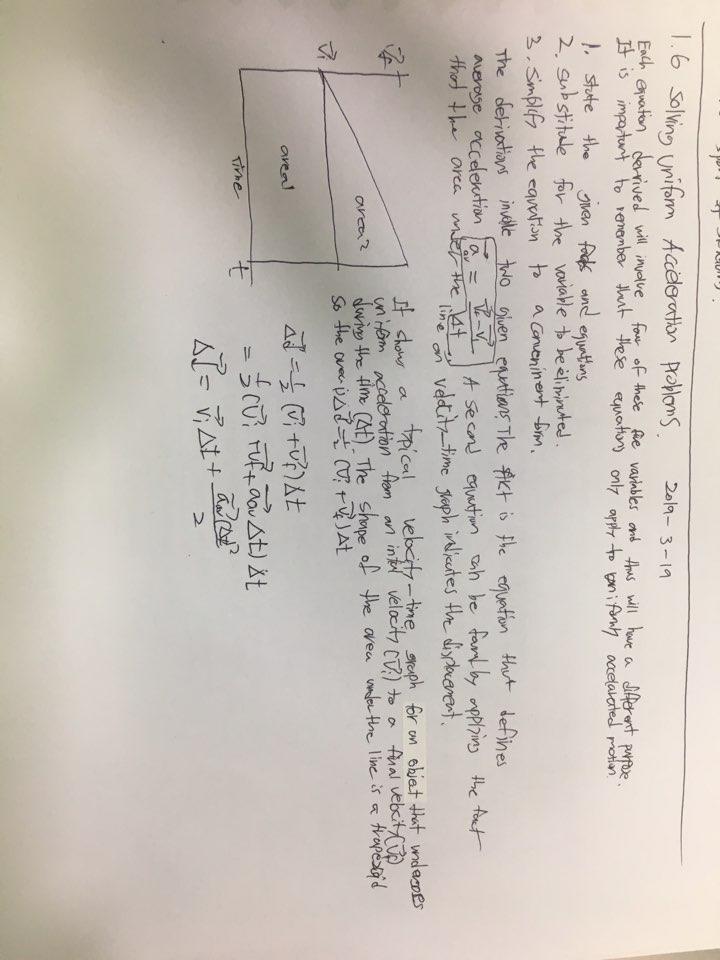 1.6 Solving Uniform Acceleration Problems. 2019-3-19
Each equation derived will involve four of these five variables and thus will have a different purpose.
It is important to remember that these equations only apply to uniformly accelerated motion.
1. State the given facts and equations
2. substitute for the variable to be eliminated.
3. Simplify the equation to a convenient form.
The derivations involve two given equations. The first is the equation that defines
average acceleration a⃗av = (v⃗f - v⃗i)/Δt A second equation can be found by applying the fact
that the area under the line on velocity-time graph indicates the displacement.
v⃗f
v⃗i
area 2
area1
Time
t
It shows a typical velocity-time graph for an object that undergoes
uniform acceleration from an initial velocity (v⃗i) to a final velocity (v⃗f)
during the time (Δt). The shape of the area under the line is a trapezoid
so the area is Δd⃗ = 1/2 (v⃗i + v⃗f) Δt
Δd⃗ = 1/2 (v⃗i + v⃗f) Δt
= 1/2 (v⃗i + v⃗f + a⃗av Δt) Δt
Δd⃗ = v⃗i Δt + a⃗av(Δt)²/2